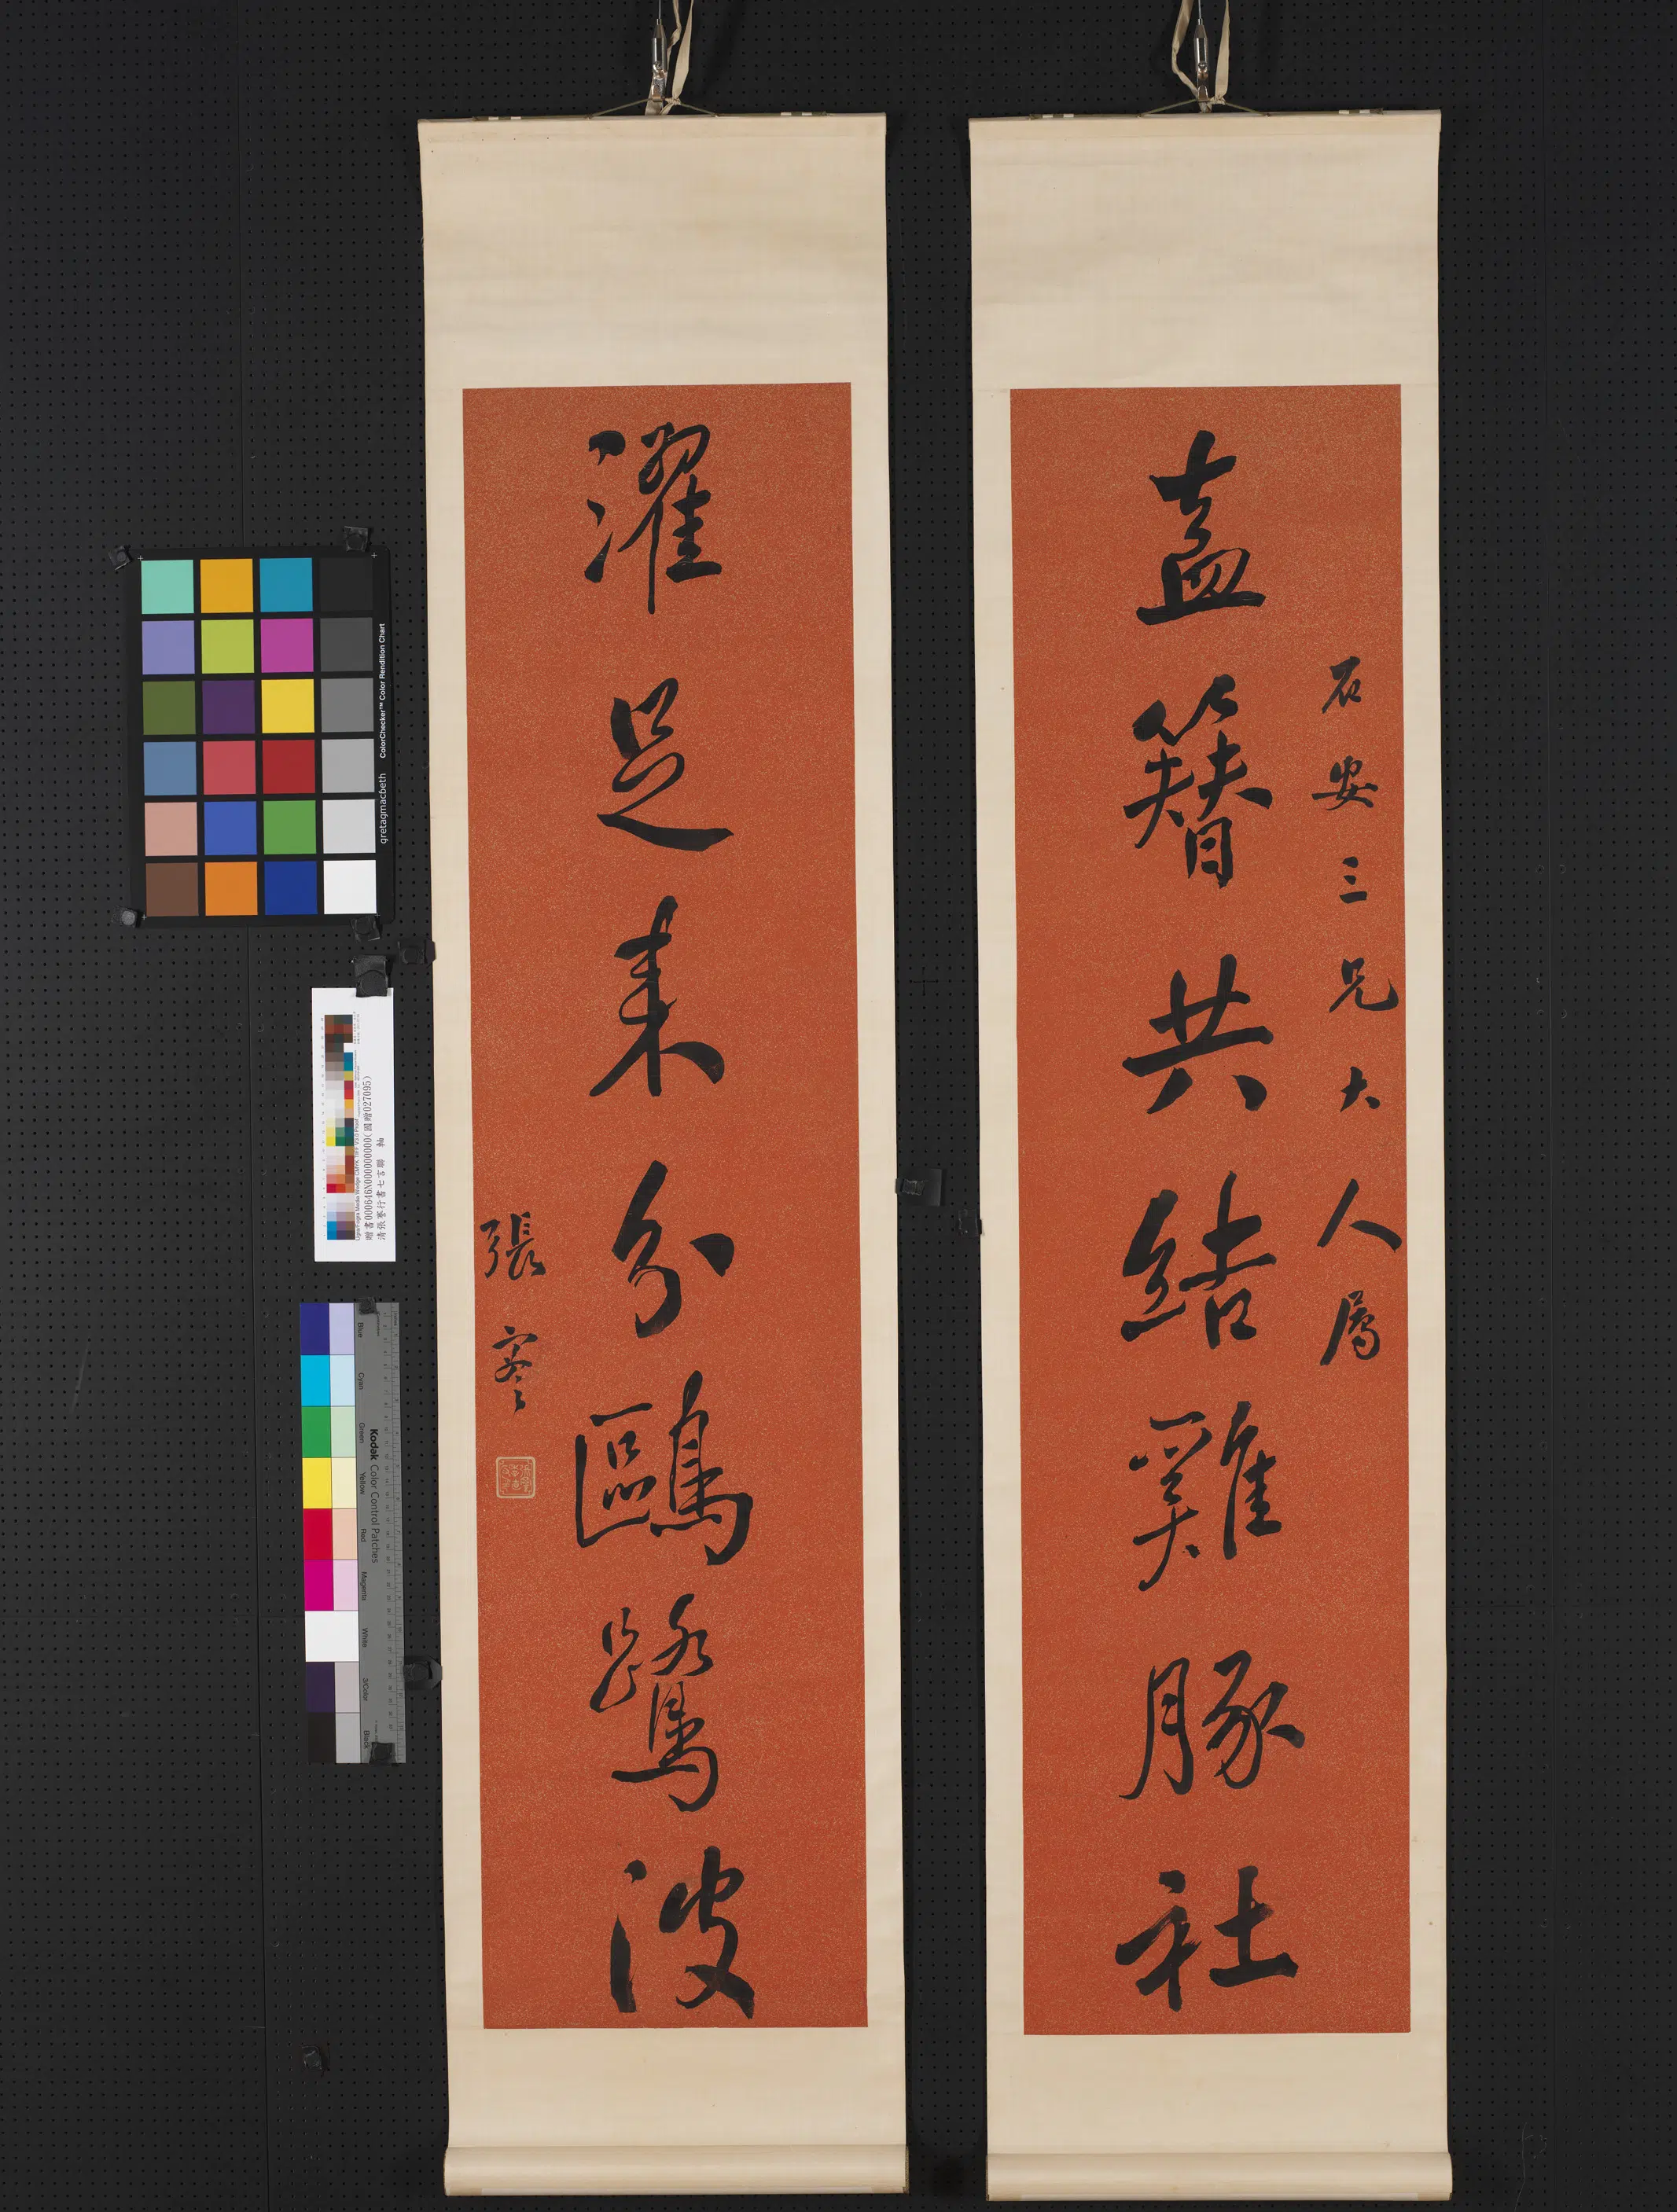 石安三兄大人屬
盍簪共結雞豚社
濯足來分鷗鷺波
張謇
ColorChecker™ Color Rendition Chart
gretagmacbeth
清張謇行書七言聯 軸
Kodak Color Control Patches
Blue
Cyan
Green
Yellow
Red
Magenta
White
3/Color
Black